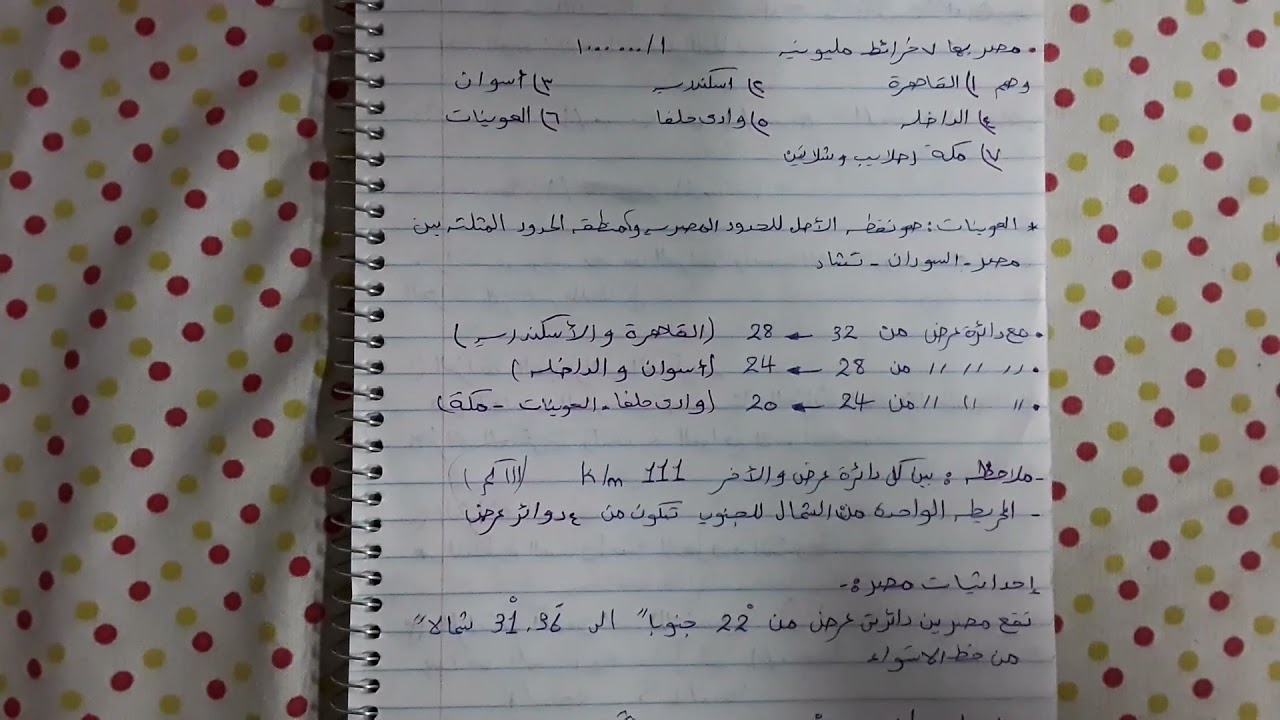 • مصر بها ٧ خرائط مليونيه ١/١٠٠٠٠٠٠
وهم ١) القاهرة ٢) اسكندريه ٣) أسوان
٤) الداخله ٥) وادى حلفا ٦) العوينات
٧) مكة (حلايب وشلاتين
* العوينات : هو نقطه الأصل للحدود المصريه والمنطقه الحدود المثلثه بين
مصر - السودان - تشاد
• مع دائرة عرض من 32 ← 28 (القاهرة و الأسكندريه)
• // // // من 28 ← 24 (أسوان و الداخله)
• // // // من 24 ← 20 (وادى حلفا - العوينات - مكة)
- ملاحظه : بين كل دائرة عرض والأخر 111 k/m (١١١ كم)
- الخريطه الواحدة من الشمال للجنوب تتكون من ٤ دوائر عرض
إحداثيات مصر :-
تقع مصر بين دائرتى عرض من 22° جنوباً الى 31°.36 شمالاً
من خط الاستواء